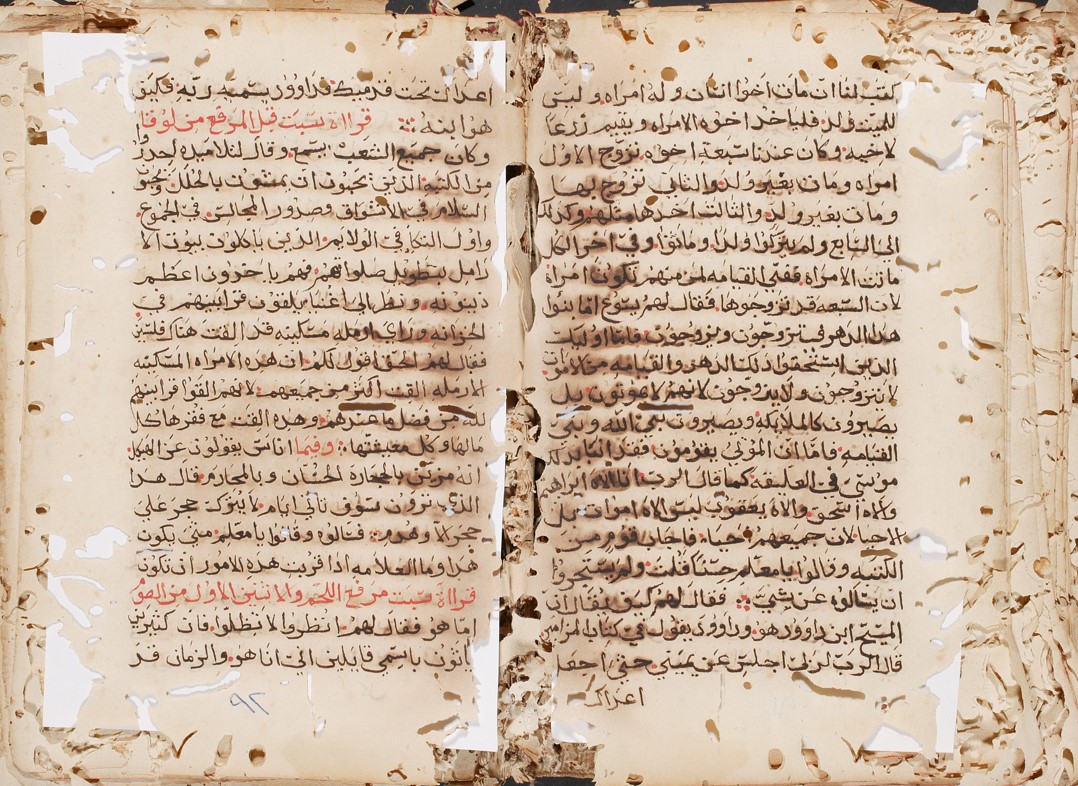 كتب لنا ان مات اخوا انسان وله امراه وليس
للميت ولد فلياخد اخوه الامراه ويقيم زرعا
لاخيه وكان عندنا سبعة اخوه تزوج الاول
امراه ومات بغير ولد والتاني تزوج بها
ومات بغير ولد والتالت اخدها متلهم وكدلك
الى السابع ولم يتركوا ولدا وماتوا وفي اخر الكل
ماتت الامراه ففي القيامه لمن منهم تكون امراه
لان السبعه قد تزوجوها فقال لهم يسوع اما بنوا
هدا الدهر فيتزوجون ويزوجون فاما اوليك
الدين استحقوا دلك الدهر والقيامه من الاموات
لا يتزوجون ولا يزوجون لانهم لا يموتون بل
يصيرون كالملايكه ويصيرون بني الله وبني
القيامه فاما ان الموتي يقومون فقد
موسي في العليقه كما قال الرب الاه ابراهيم
والاه اسحق والاه يعقوب ليس الاه اموات بل
الاحيا لان جميعهم احيا فاجاب قوم من
الكتبه وقالوا يا معلم حسنا قلت ولم يستجروا
ان يسالوه عن شي فقال لهم كيف يقال ان
المسيح ابن داوود هو وداوود يقول في كتاب المزامير
قال الرب لربى اجلس عن يمينى حتى اجعل
اعداك
اعداك تحت قدميك فداوود يسميه ربه فكيف
هو ابنه قراءة سبت قبل المرفع من لوقا
وكان جميع الشعب يسمع وقال لتلاميده احدروا
من الكتبه الدين يحبون ان يمشون بالحلل ويحبو
السلام في الاسواق وصدور المجالس في الجموع
واول التكا في الولايم الدين ياكلون بيوت الا
رامل بتطويل صلواتهم فهم ياخدون اعظم
دينونه ونظر الي اغنيا يلقون قرابينهم في
الخزانه وراي ارمله مسكينه قد القت هناك فلسين
فقال لهم الحق اقول لكم ان هده الامراه المسكينه
الارمله القت اكتر من جميعهم لانهم القوا قرابينهم
لله من فضل ما عندهم وهده القت مع فقرها كل
مالها وكل معيشتها وفيما اناس يقولون عن الهيكل
انه مزين بالحجاره الحسان وبالمحارم قال هدا
الدي ترون سوف تاتي ايام لا يترك حجر علي
حجر الا وهدم فسالوه وقالوا يا معلم متي يكون
هدا وما العلامه ادا قربت هده الامور ان تكون
قراءة سبت مرفع اللحم والاتنين الاول من الصوم
اما هو فقال لهم انظروا لا تظلوا فان كتيرين
ياتون باسمي قايلين اني انا هو والزمان قد
٩٢